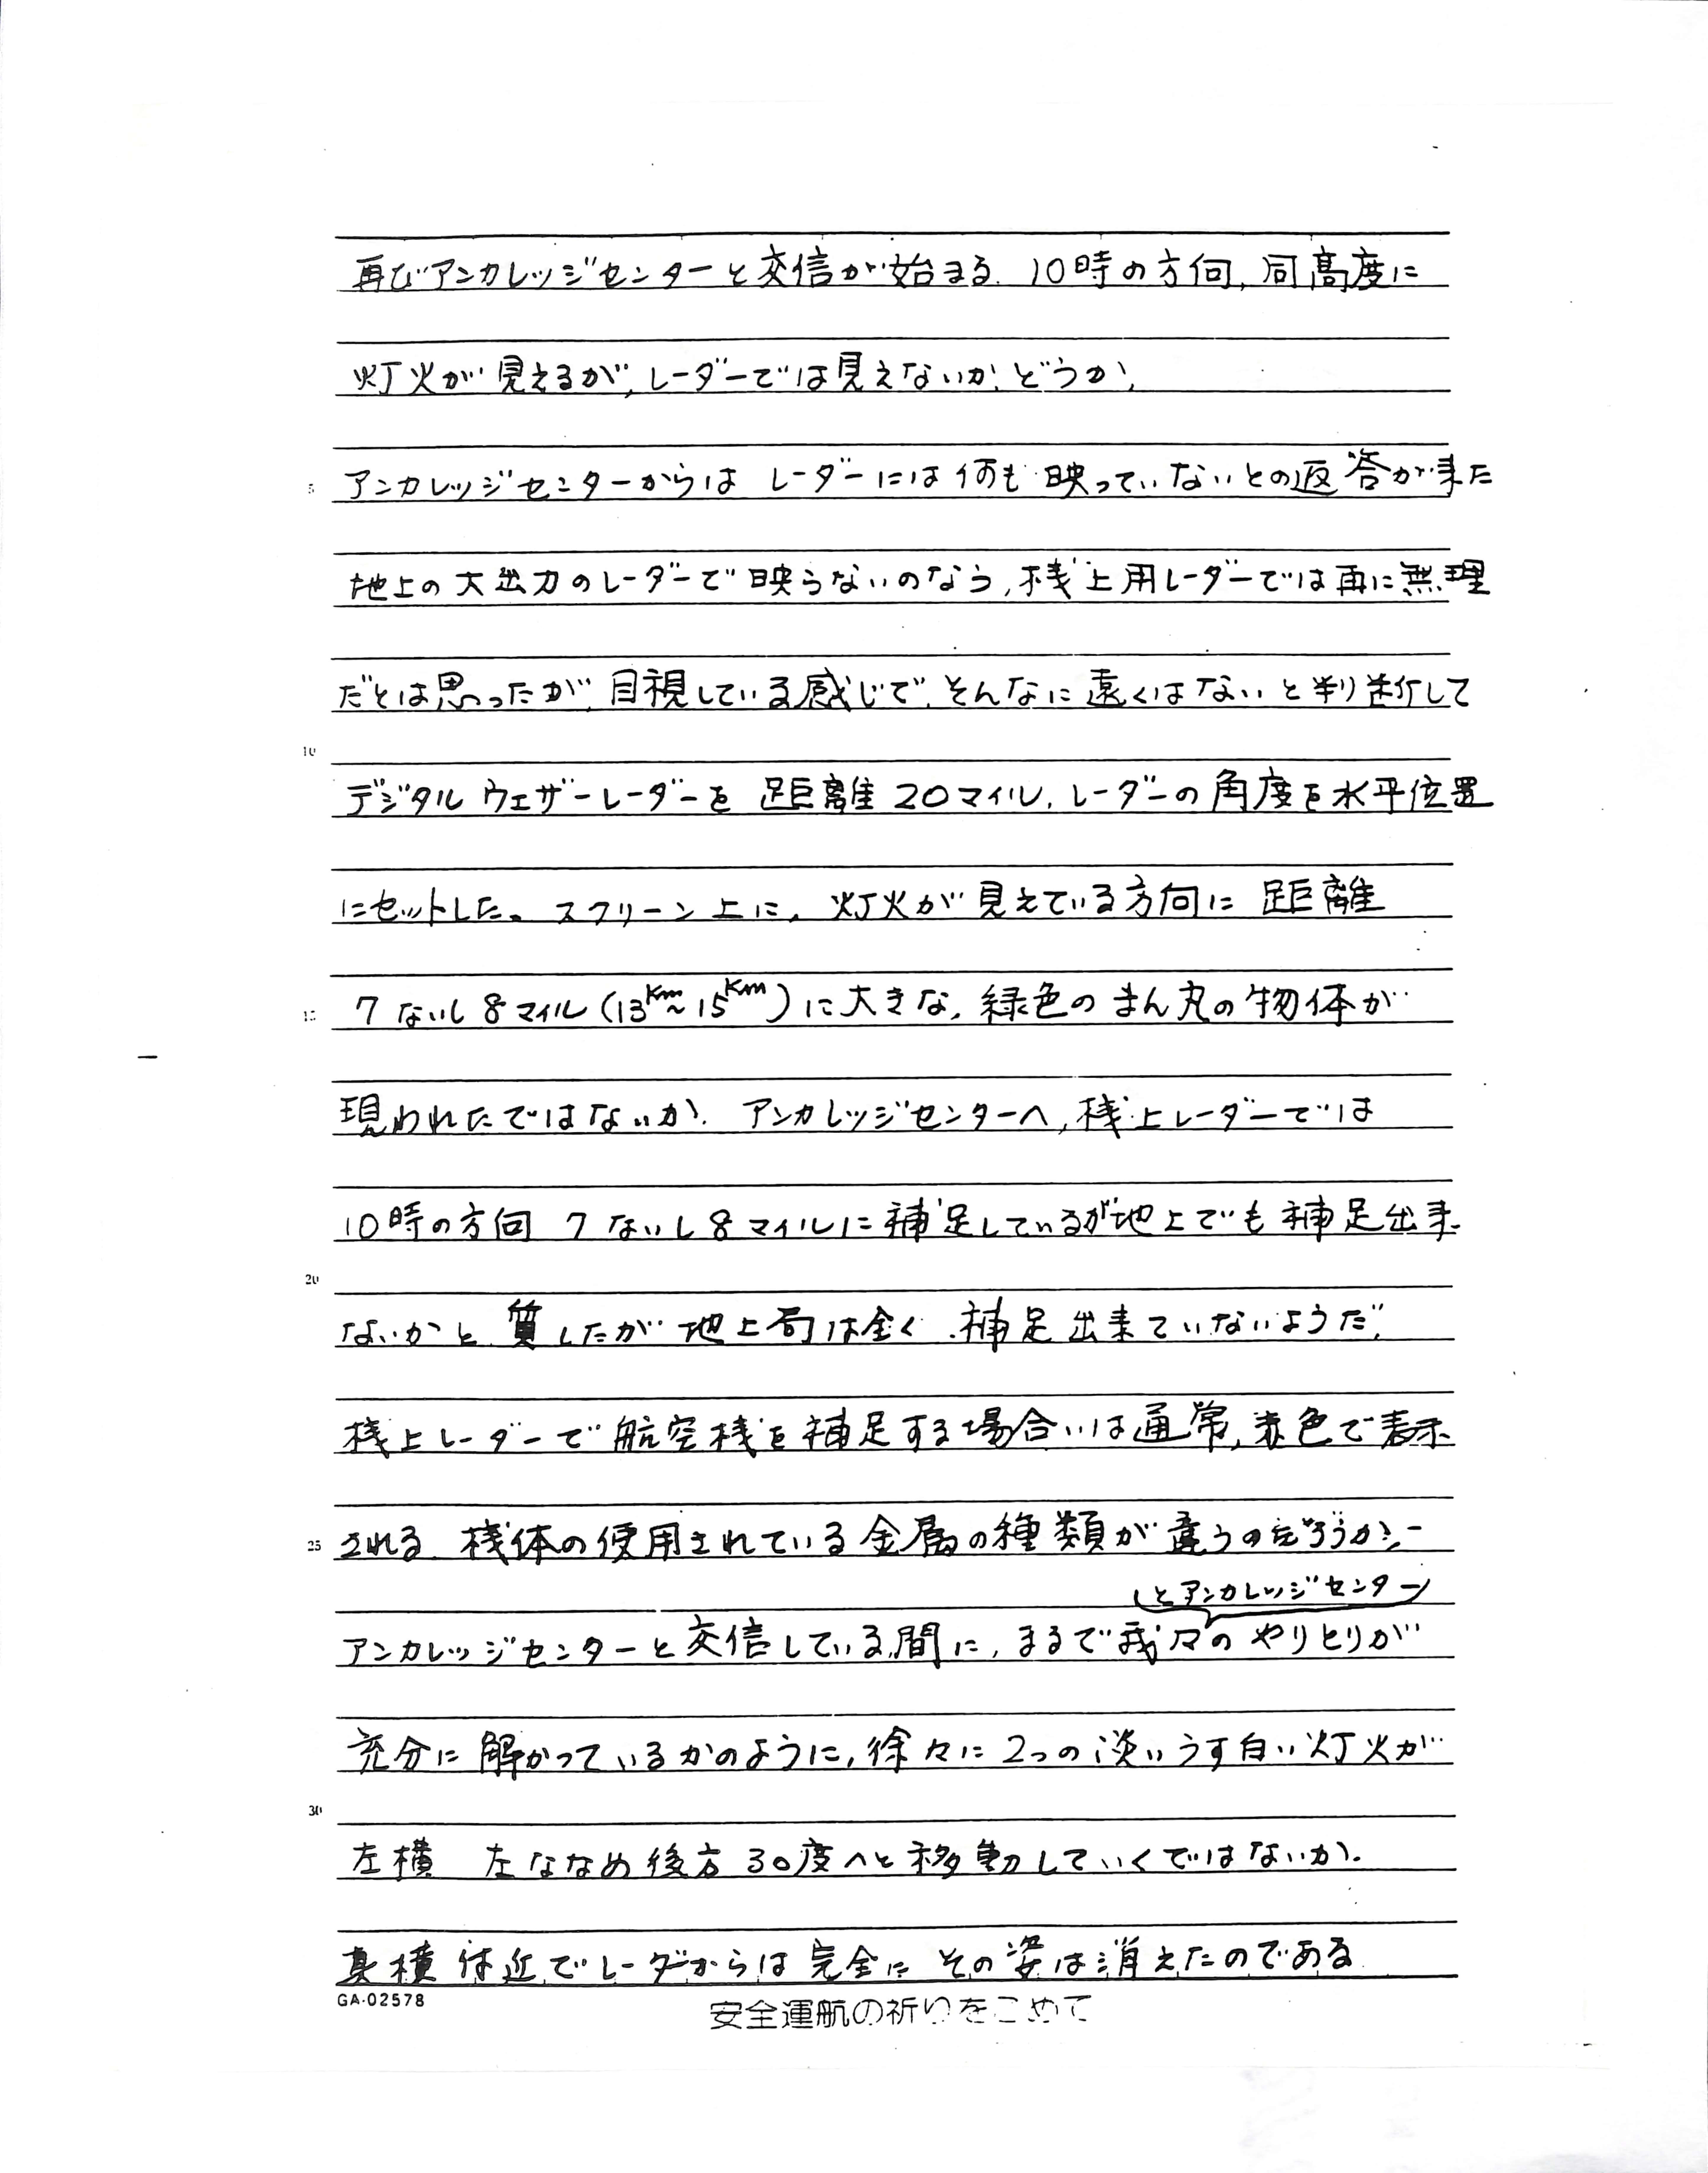 再びアンカレッジセンターと交信が始まる. 10時の方向, 同高度に
灯火が見えるが, レーダーでは見えないか, どうか,
5 アンカレッジセンターからは レーダーには何も映っていないとの返答が来た
地上の大出力のレーダーで映らないのなら, 機上用レーダーでは再に無理
だとは思ったが, 目視している感じで, そんなに遠くはないと判断して
10
デジタルウェザーレーダーを 距離20マイル, レーダーの角度を水平位置
にセットした。スクリーン上に, 灯火が見えている方向に 距離
15 7ないし8マイル(13Km~15Km)に大きな, 緑色のまん丸の物体が
現われたではないか. アンカレッジセンターへ, 機上レーダーでは
10時の方向 7ないし8マイルに補足しているが地上でも補足出来
20
ないかと質したが地上局は全く補足出来ていないようだ,
機上レーダーで航空機を補足する場合いは通常, 赤色で表示
25 される. 機体の使用されている金属の種類が違うのだろうか, -
(とアンカレッジセンター)
アンカレッジセンターと交信している間に, まるで我々のやりとりが
充分に解かっているかのように, 徐々に2つの淡いうす白い灯火が
30
左横 左ななめ後方30度へと移動していくではないか.
真横付近でレーダからは完全にその姿は消えたのである
GA-02578
安全運航の祈りをこめて